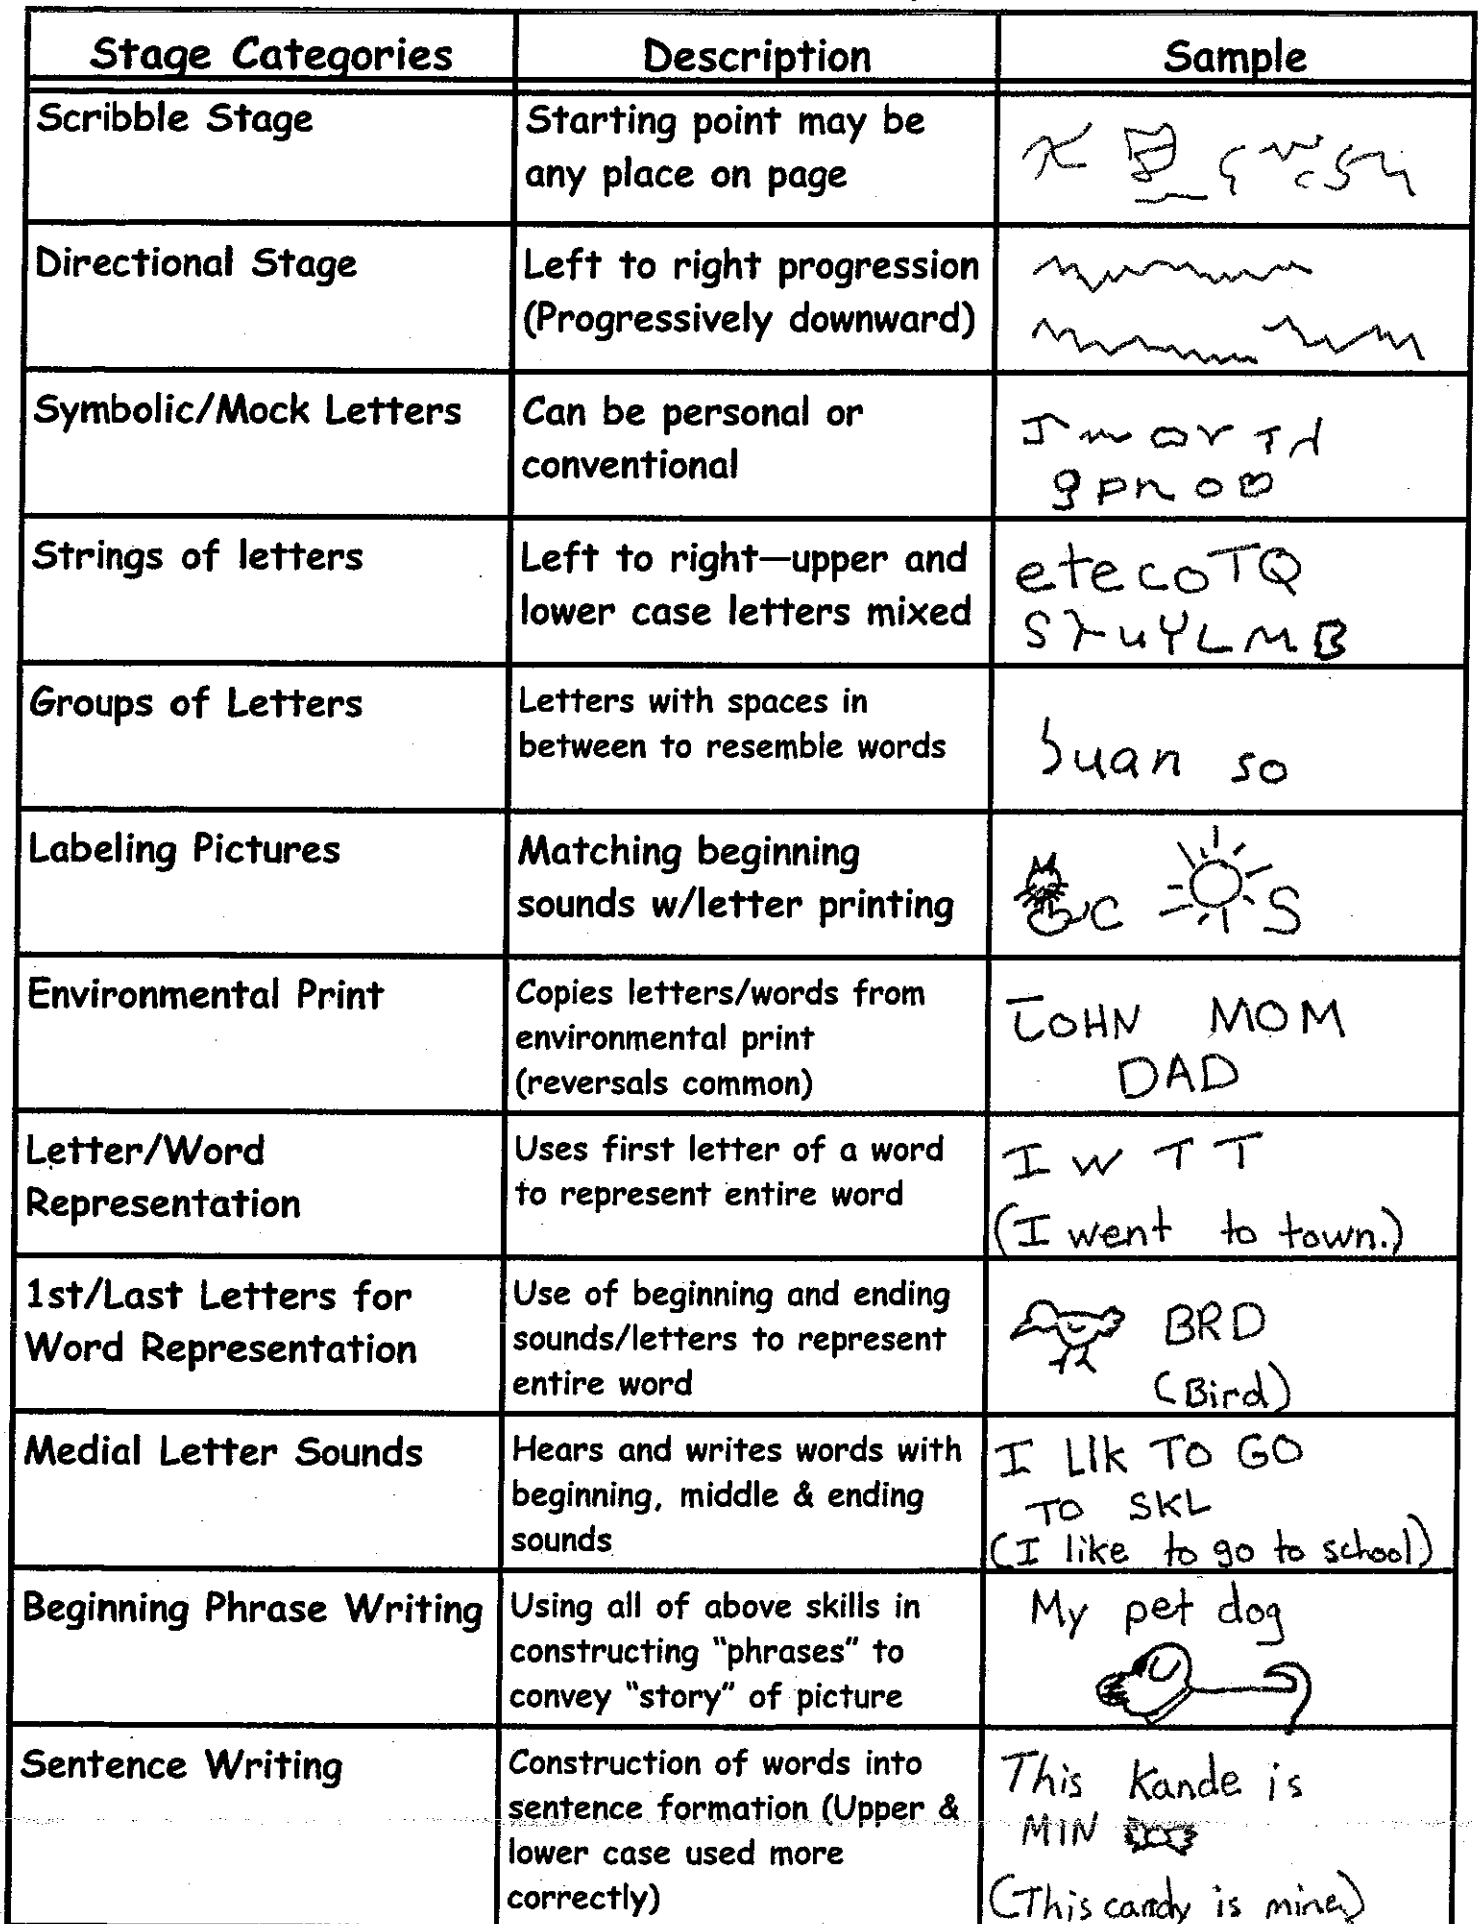 Stage Categories
Description
Sample
Scribble Stage
Starting point may be
any place on page
Directional Stage
Left to right progression
(Progressively downward)
Symbolic/Mock Letters
Can be personal or
conventional
Strings of letters
Left to right—upper and
lower case letters mixed
etecoTQ
Groups of Letters
Letters with spaces in
between to resemble words
so
Labeling Pictures
Matching beginning
sounds w/letter printing
C S
Environmental Print
Copies letters/words from
environmental print
(reversals common)
JOHN MOM
DAD
Letter/Word
Representation
Uses first letter of a word
to represent entire word
I W T T
(I went to town.)
1st/Last Letters for
Word Representation
Use of beginning and ending
sounds/letters to represent
entire word
BRD
(Bird)
Medial Letter Sounds
Hears and writes words with
beginning, middle & ending
sounds
I LIK TO GO
TO SKL
(I like to go to school)
Beginning Phrase Writing
Using all of above skills in
constructing "phrases" to
convey "story" of picture
My pet dog
Sentence Writing
Construction of words into
sentence formation (Upper &
lower case used more
correctly)
This Kande is
MIN
(This candy is mine)